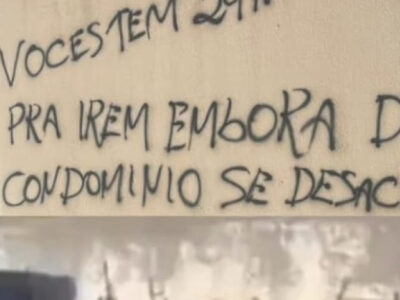 VOCES TEM 24H
PRA IREM EMBORA D
CONDOMINIO SE DESAC